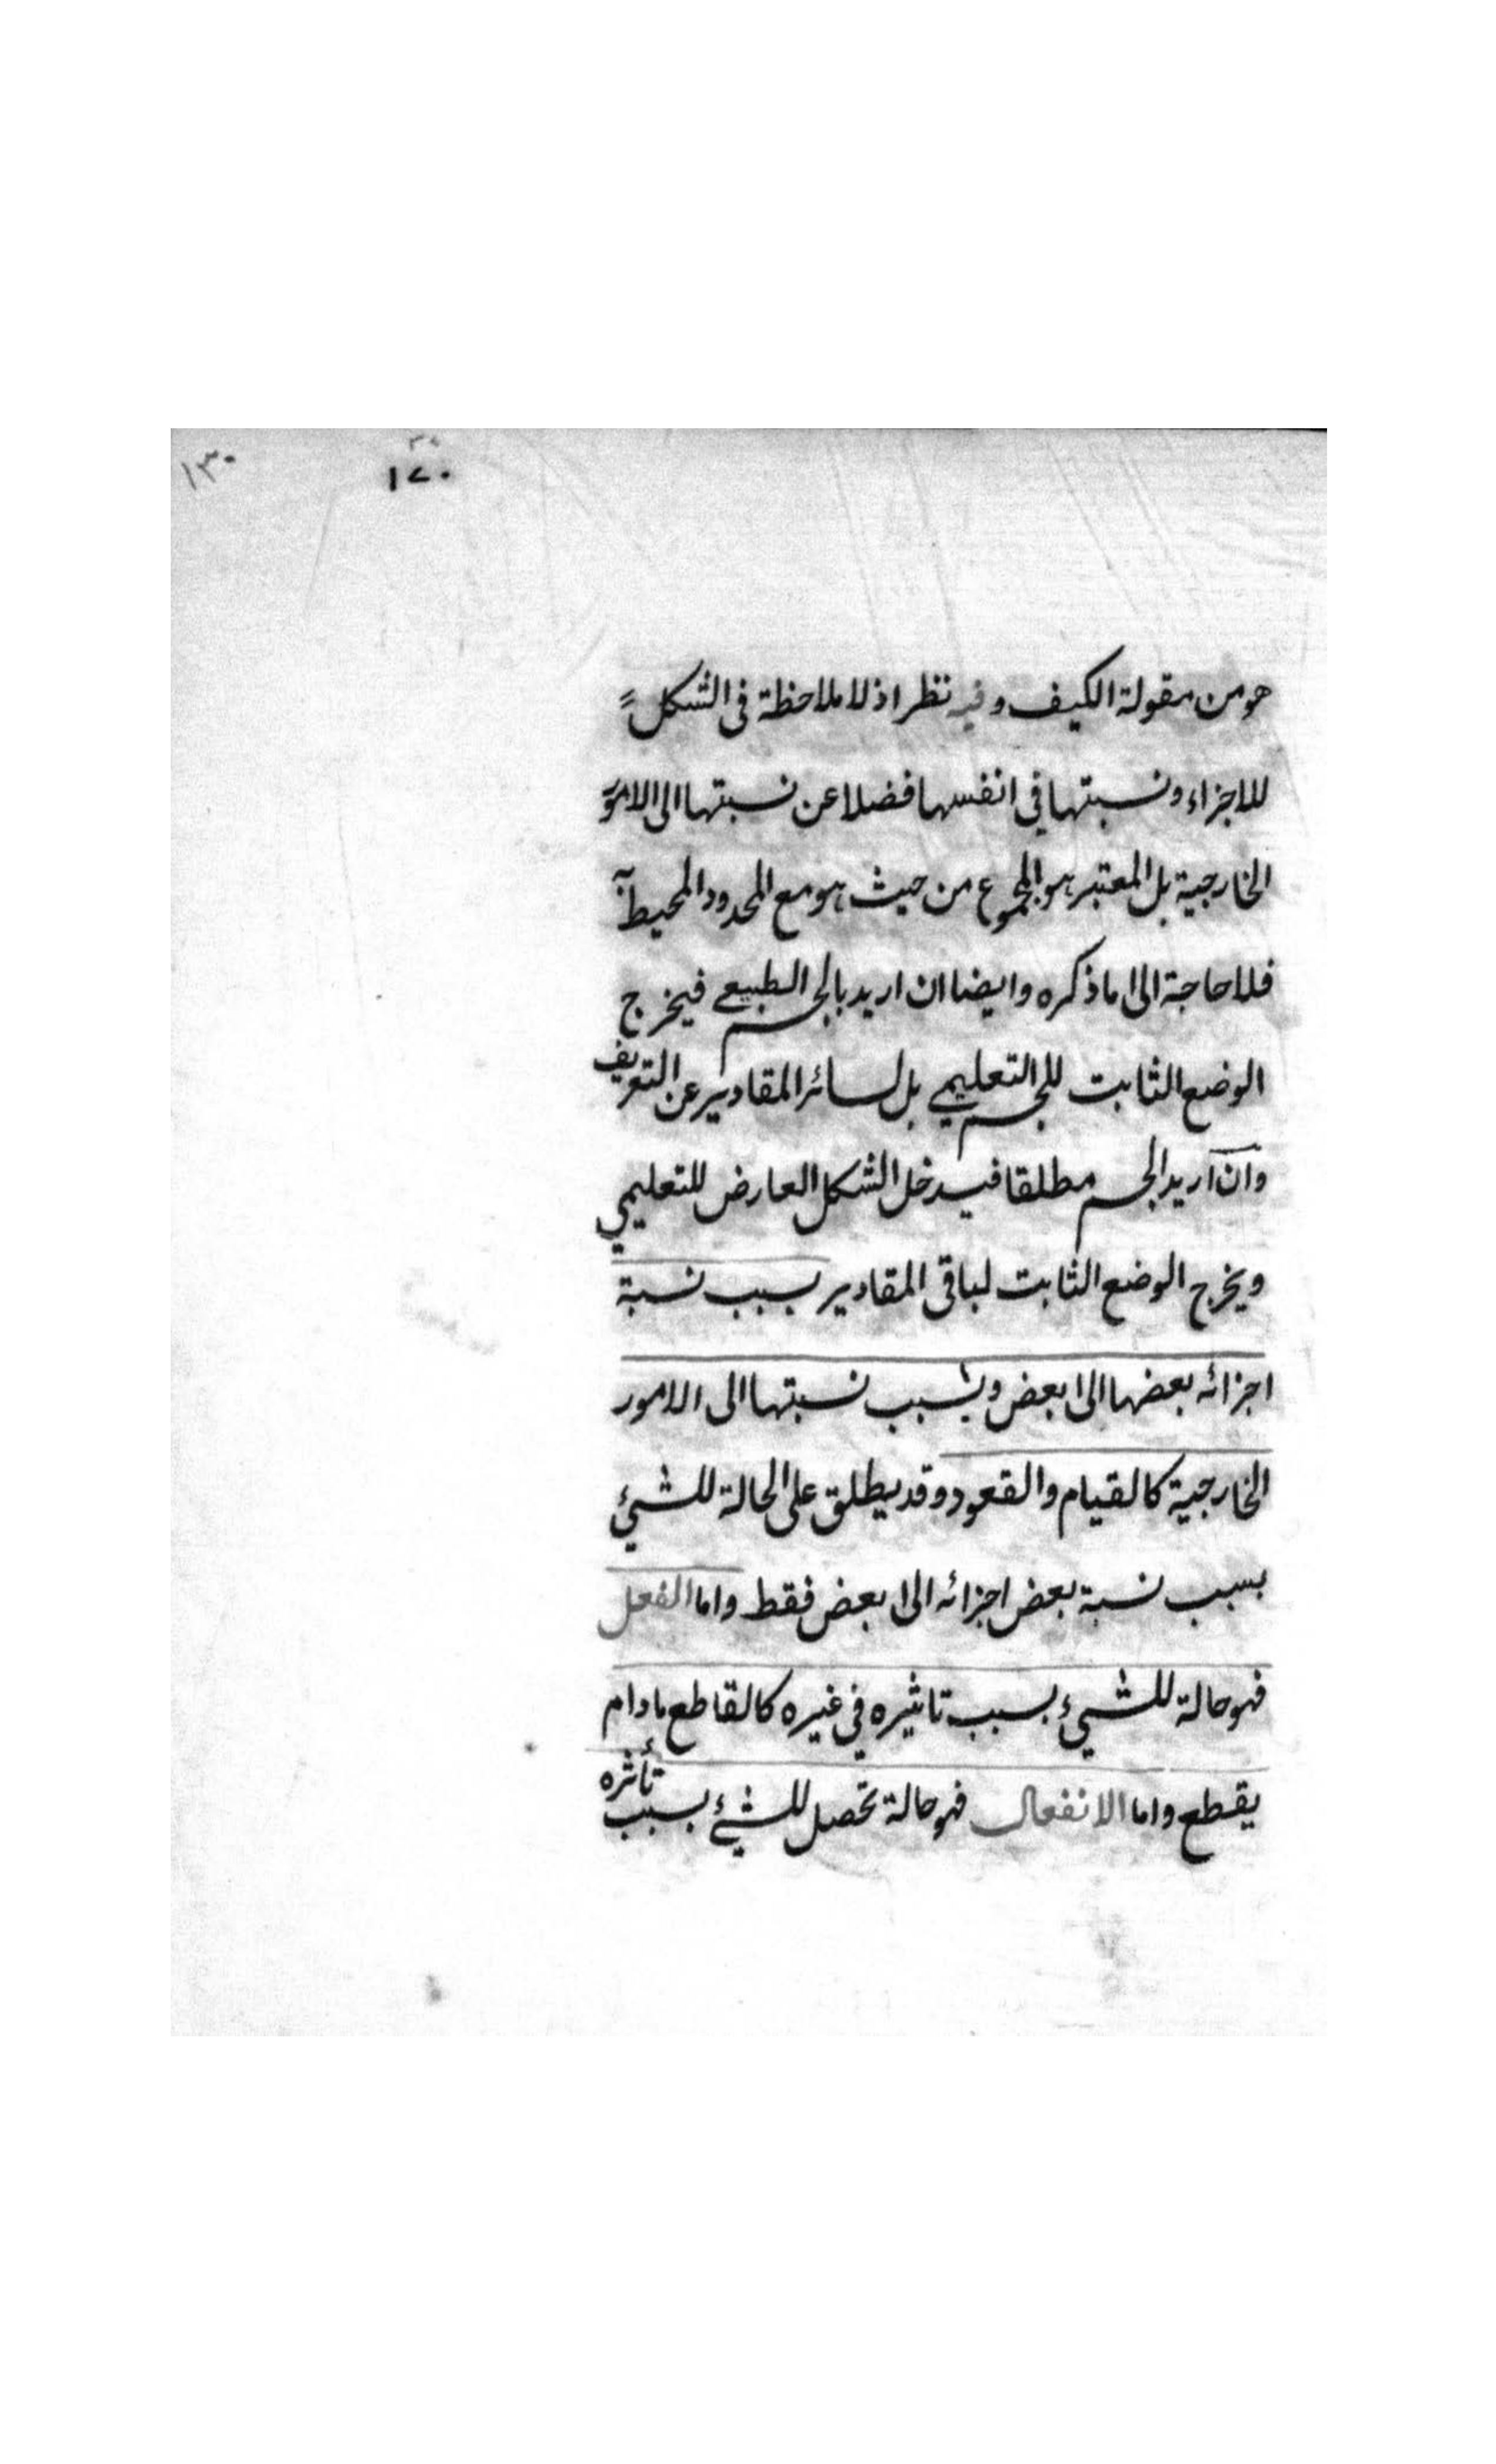 ١٣٠
١٧٠
هو من مقولة الكيف وفيه نظر اذ لا ملاحظة فى الشكل
للاجزاء ونسبتها في انفسها فضلا عن نسبتها الى الامور
الخارجية بل المعتبر هو المجموع من حيث هو مع الحدود المحيطة
فلا حاجة الى ما ذكره وايضا ان اريد بالجسم الطبيعي فيخرج
الوضع الثابت للجسم التعليمي بل لسائر المقادير عن التعريف
وان اريد الجسم مطلقا فيدخل الشكل العارض للتعليمي
ويخرج الوضع الثابت لباقى المقادير بسبب نسبة
اجزائه بعضها الى بعض وبسبب نسبتها الى الامور
الخارجية كالقيام والقعود وقد يطلق على الحالة للشيئ
بسبب نسبة بعض اجزائه الى بعض فقط واما الفعل
فهو حالة للشيء بسبب تاثيره في غيره كالقاطع مادام
يقطع واما الانفعال فهو حالة تحصل للشيئ بسبب تأثره